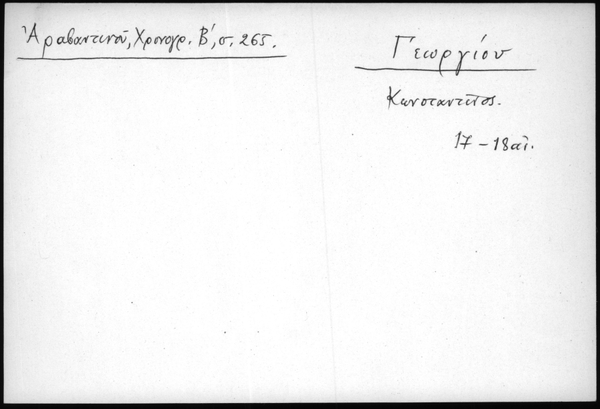 Ἀραβαντινοῦ, Χρονογρ. Β', σ. 265.
Γεωργίου
Κωνσταντῖνος.
17 – 18 αἰ.